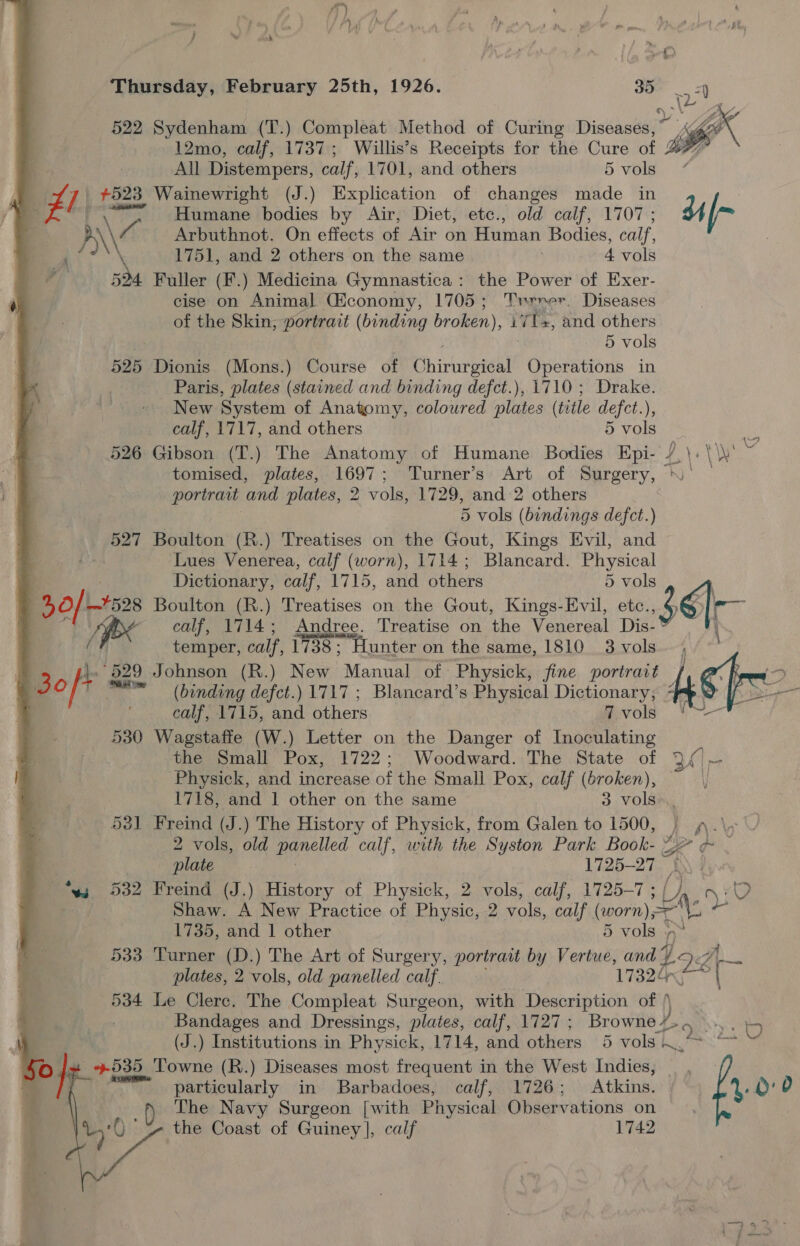 Thursday, February 25th, 1926. 35
522 Sydenham (T.) Compleat Method of Curing Diseases,
12mo, calf, 1737; Willis's Receipts for the Cure of
All Distempers, calf, 1701, and others 5 vols
£1 +523 Wainewright (J.) Explication of changes made in
Humane bodies by Air, Diet, etc., old calf, 1707;
Arbuthnot. On effects of Air on Human Bodies, calf,
1751, and 2 others on the same 4 vols
524 Fuller (F.) Medicina Gymnastica: the Power of Exer-
cise on Animal Œconomy, 1705; Turner. Diseases
of the Skin, portrait (binding broken), and others
5 vols
525 Dionis (Mons.) Course of Chirurgical Operations in
Paris, plates (stained and binding defct.), 1710; Drake.
New System of Anatomy, coloured plates (title defct.),
calf, 1717, and others 5 vols
526 Gibson (T.) The Anatomy of Humane Bodies Epi-
tomised, plates, 1697; Turner's Art of Surgery,
portrait and plates, 2 vols, 1729, and 2 others
5 vols (bindings defct.)
527 Boulton (R.) Treatises on the Gout, Kings Evil, and
Lues Venerea, calf (worn), 1714; Blancard. Physical
Dictionary, calf, 1715, and others 5 vols
30/- +528 Boulton (R.) Treatises on the Gout, Kings-Evil, etc., 36/-
calf, 1714; Andree. Treatise on the Venereal Dis-
temper, calf, 1738; Hunter on the same, 1810 3 vols
30/- 529 Johnson (R.) New Manual of Physick, fine portrait
(binding defct.) 1717; Blancard's Physical Dictionary,
calf, 1715, and others 7 vols
530 Wagstaffe (W.) Letter on the Danger of Inoculating
the Small Pox, 1722; Woodward. The State of
Physick, and increase of the Small Pox, calf (broken),
1718, and 1 other on the same 3 vols
531 Freind (J.) The History of Physick, from Galen to 1500,
2 vols, old panelled calf, with the Syston Park Book-
plate 1725-27
532 Freind (J.) History of Physick, 2 vols, calf, 1725-7;
Shaw. A New Practice of Physic, 2 vols, calf (worn),
1735, and 1 other 5 vols
533 Turner (D.) The Art of Surgery, portrait by Vertue, and
plates, 2 vols, old panelled calf. 1732
534 Le Clerc. The Compleat Surgeon, with Description of
Bandages and Dressings, plates, calf, 1727; Browne
(J.) Institutions in Physick, 1714, and others 5 vols
50/- +535 Towne (R.) Diseases most frequent in the West Indies,
particularly in Barbadoes, calf, 1726; Atkins.
The Navy Surgeon [with Physical Observations on
the Coast of Guiney], calf 1742